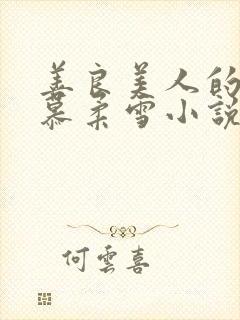 善良美人的
慕柔雪小說
何雲喜